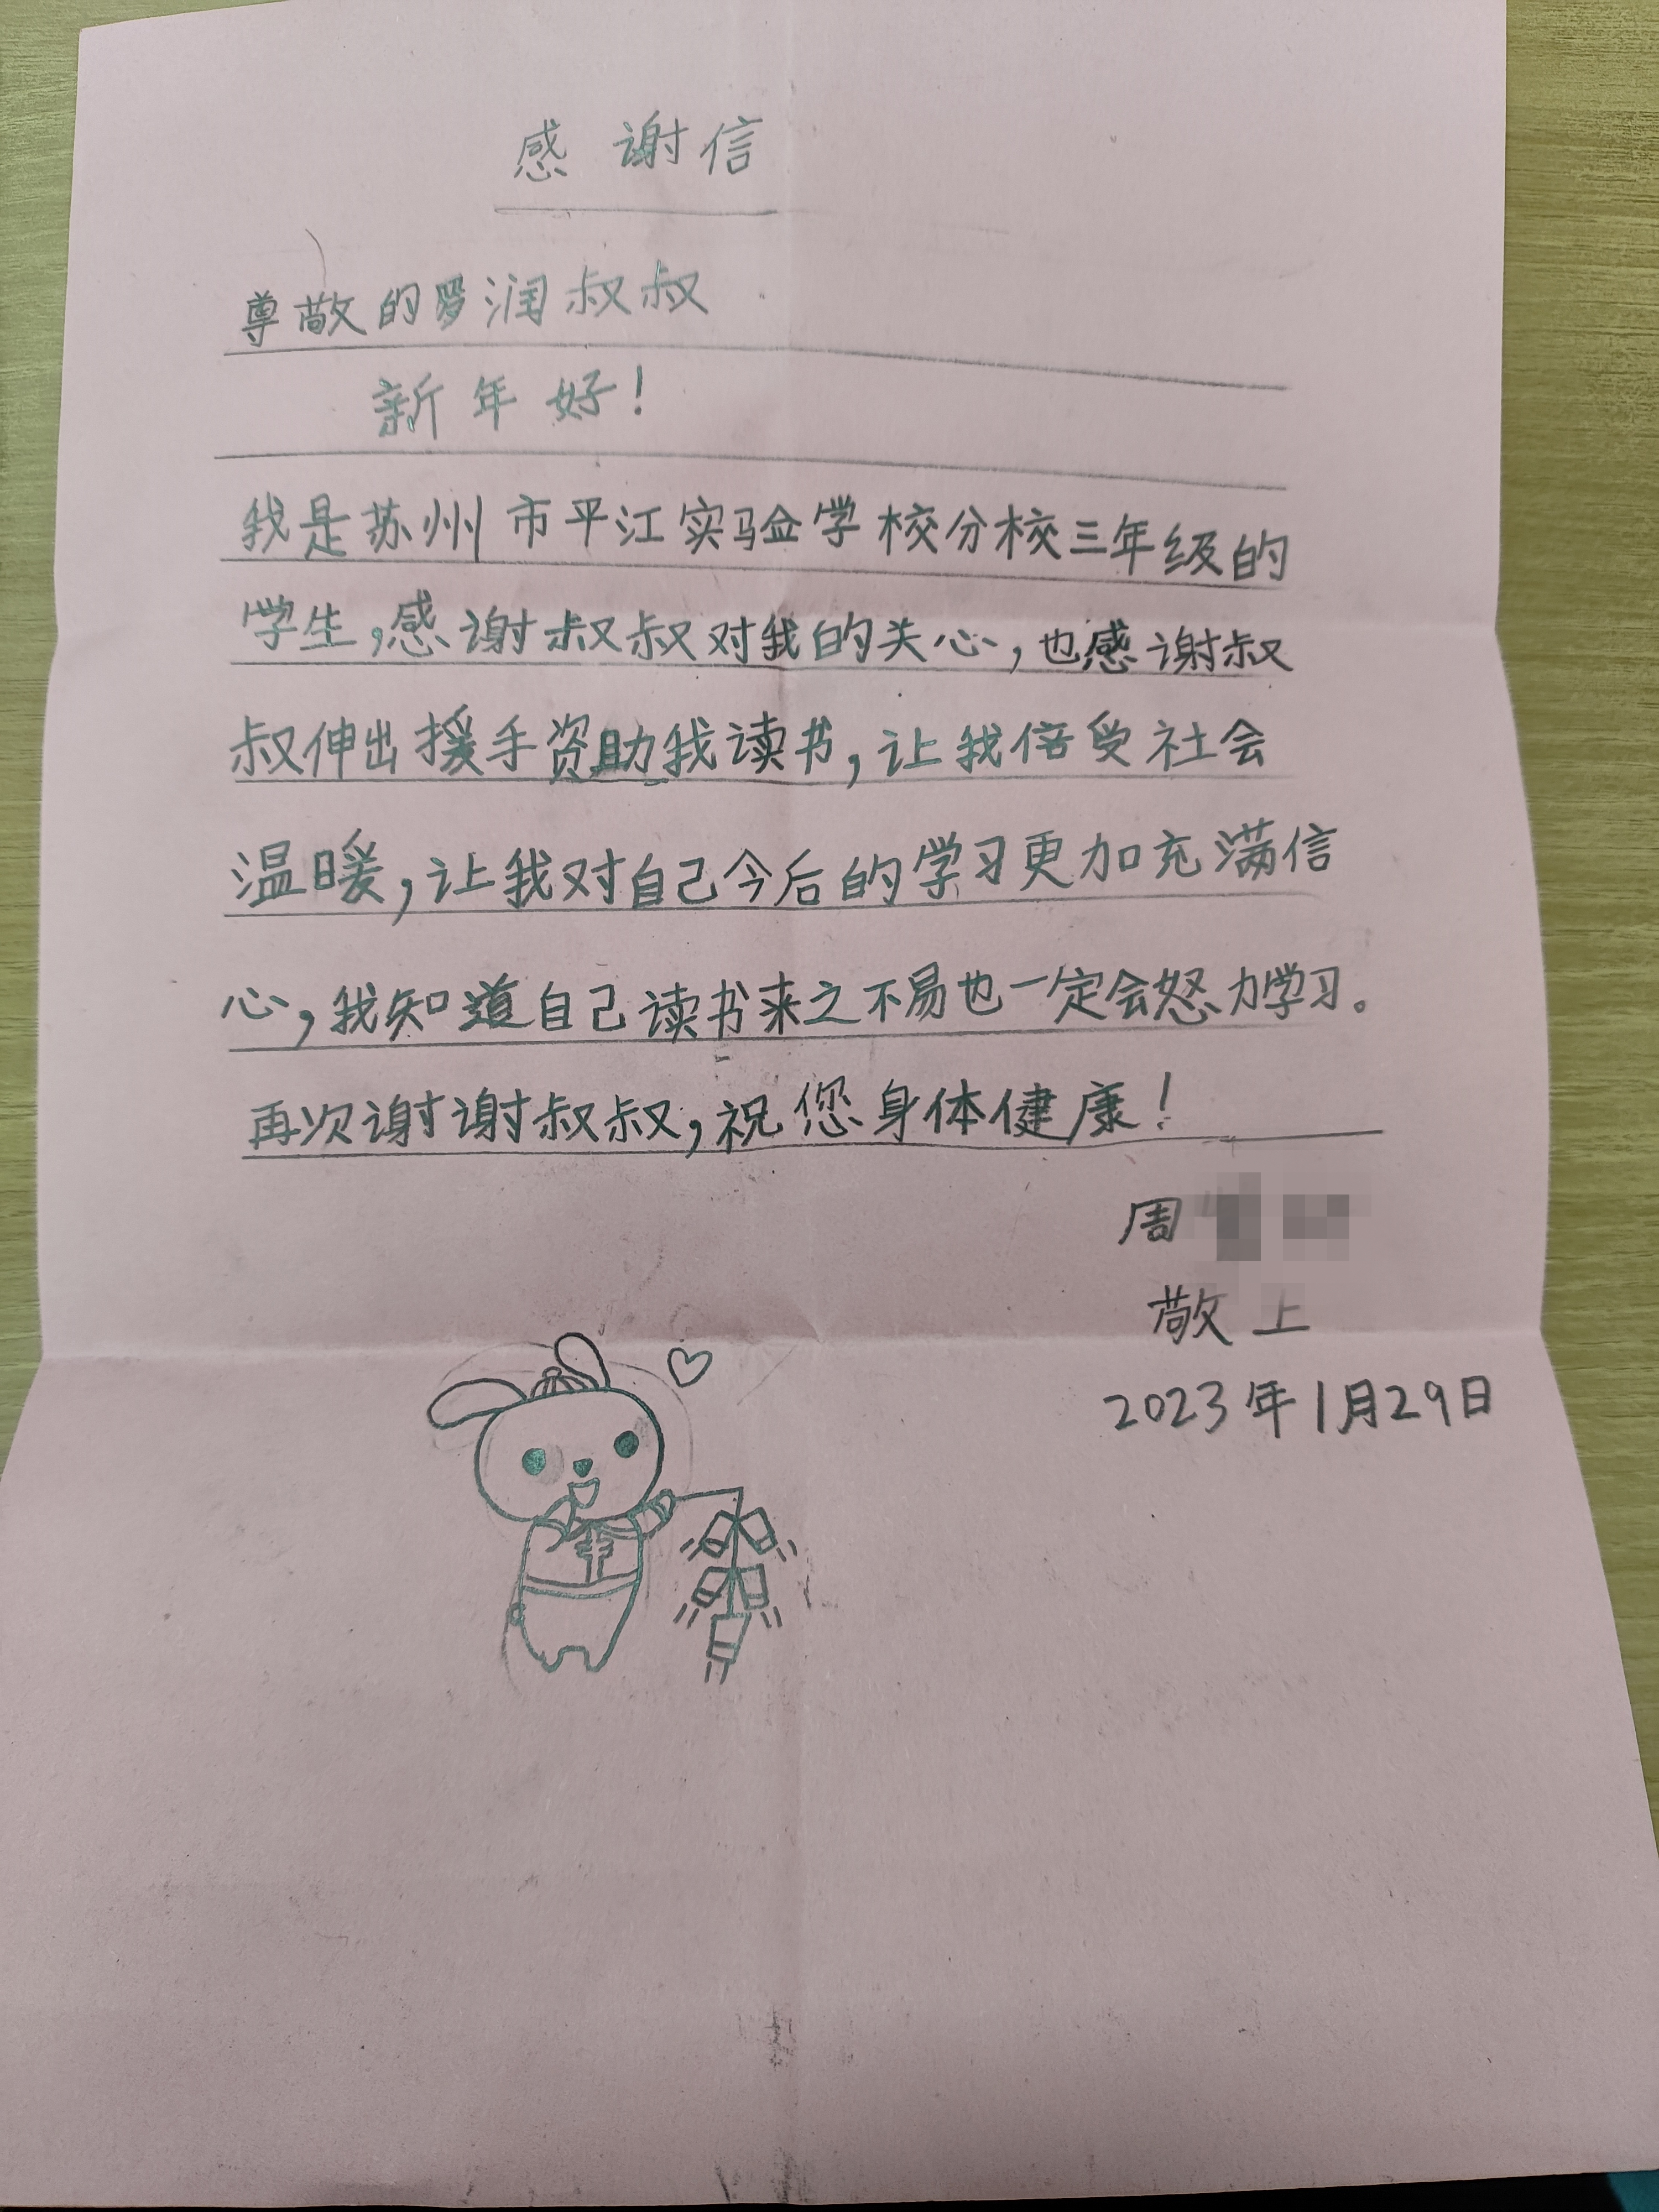 感谢信
尊敬的罗润叔叔
新年好!
我是苏州市平江实验学校分校三年级的
学生,感谢叔叔对我的关心,也感谢叔
叔伸出援手资助我读书,让我倍受社会
温暖,让我对自己今后的学习更加充满信
心,我知道自己读书来之不易也一定会努力学习。
再次谢谢叔叔,祝您身体健康!
周
敬上
2023年1月29日